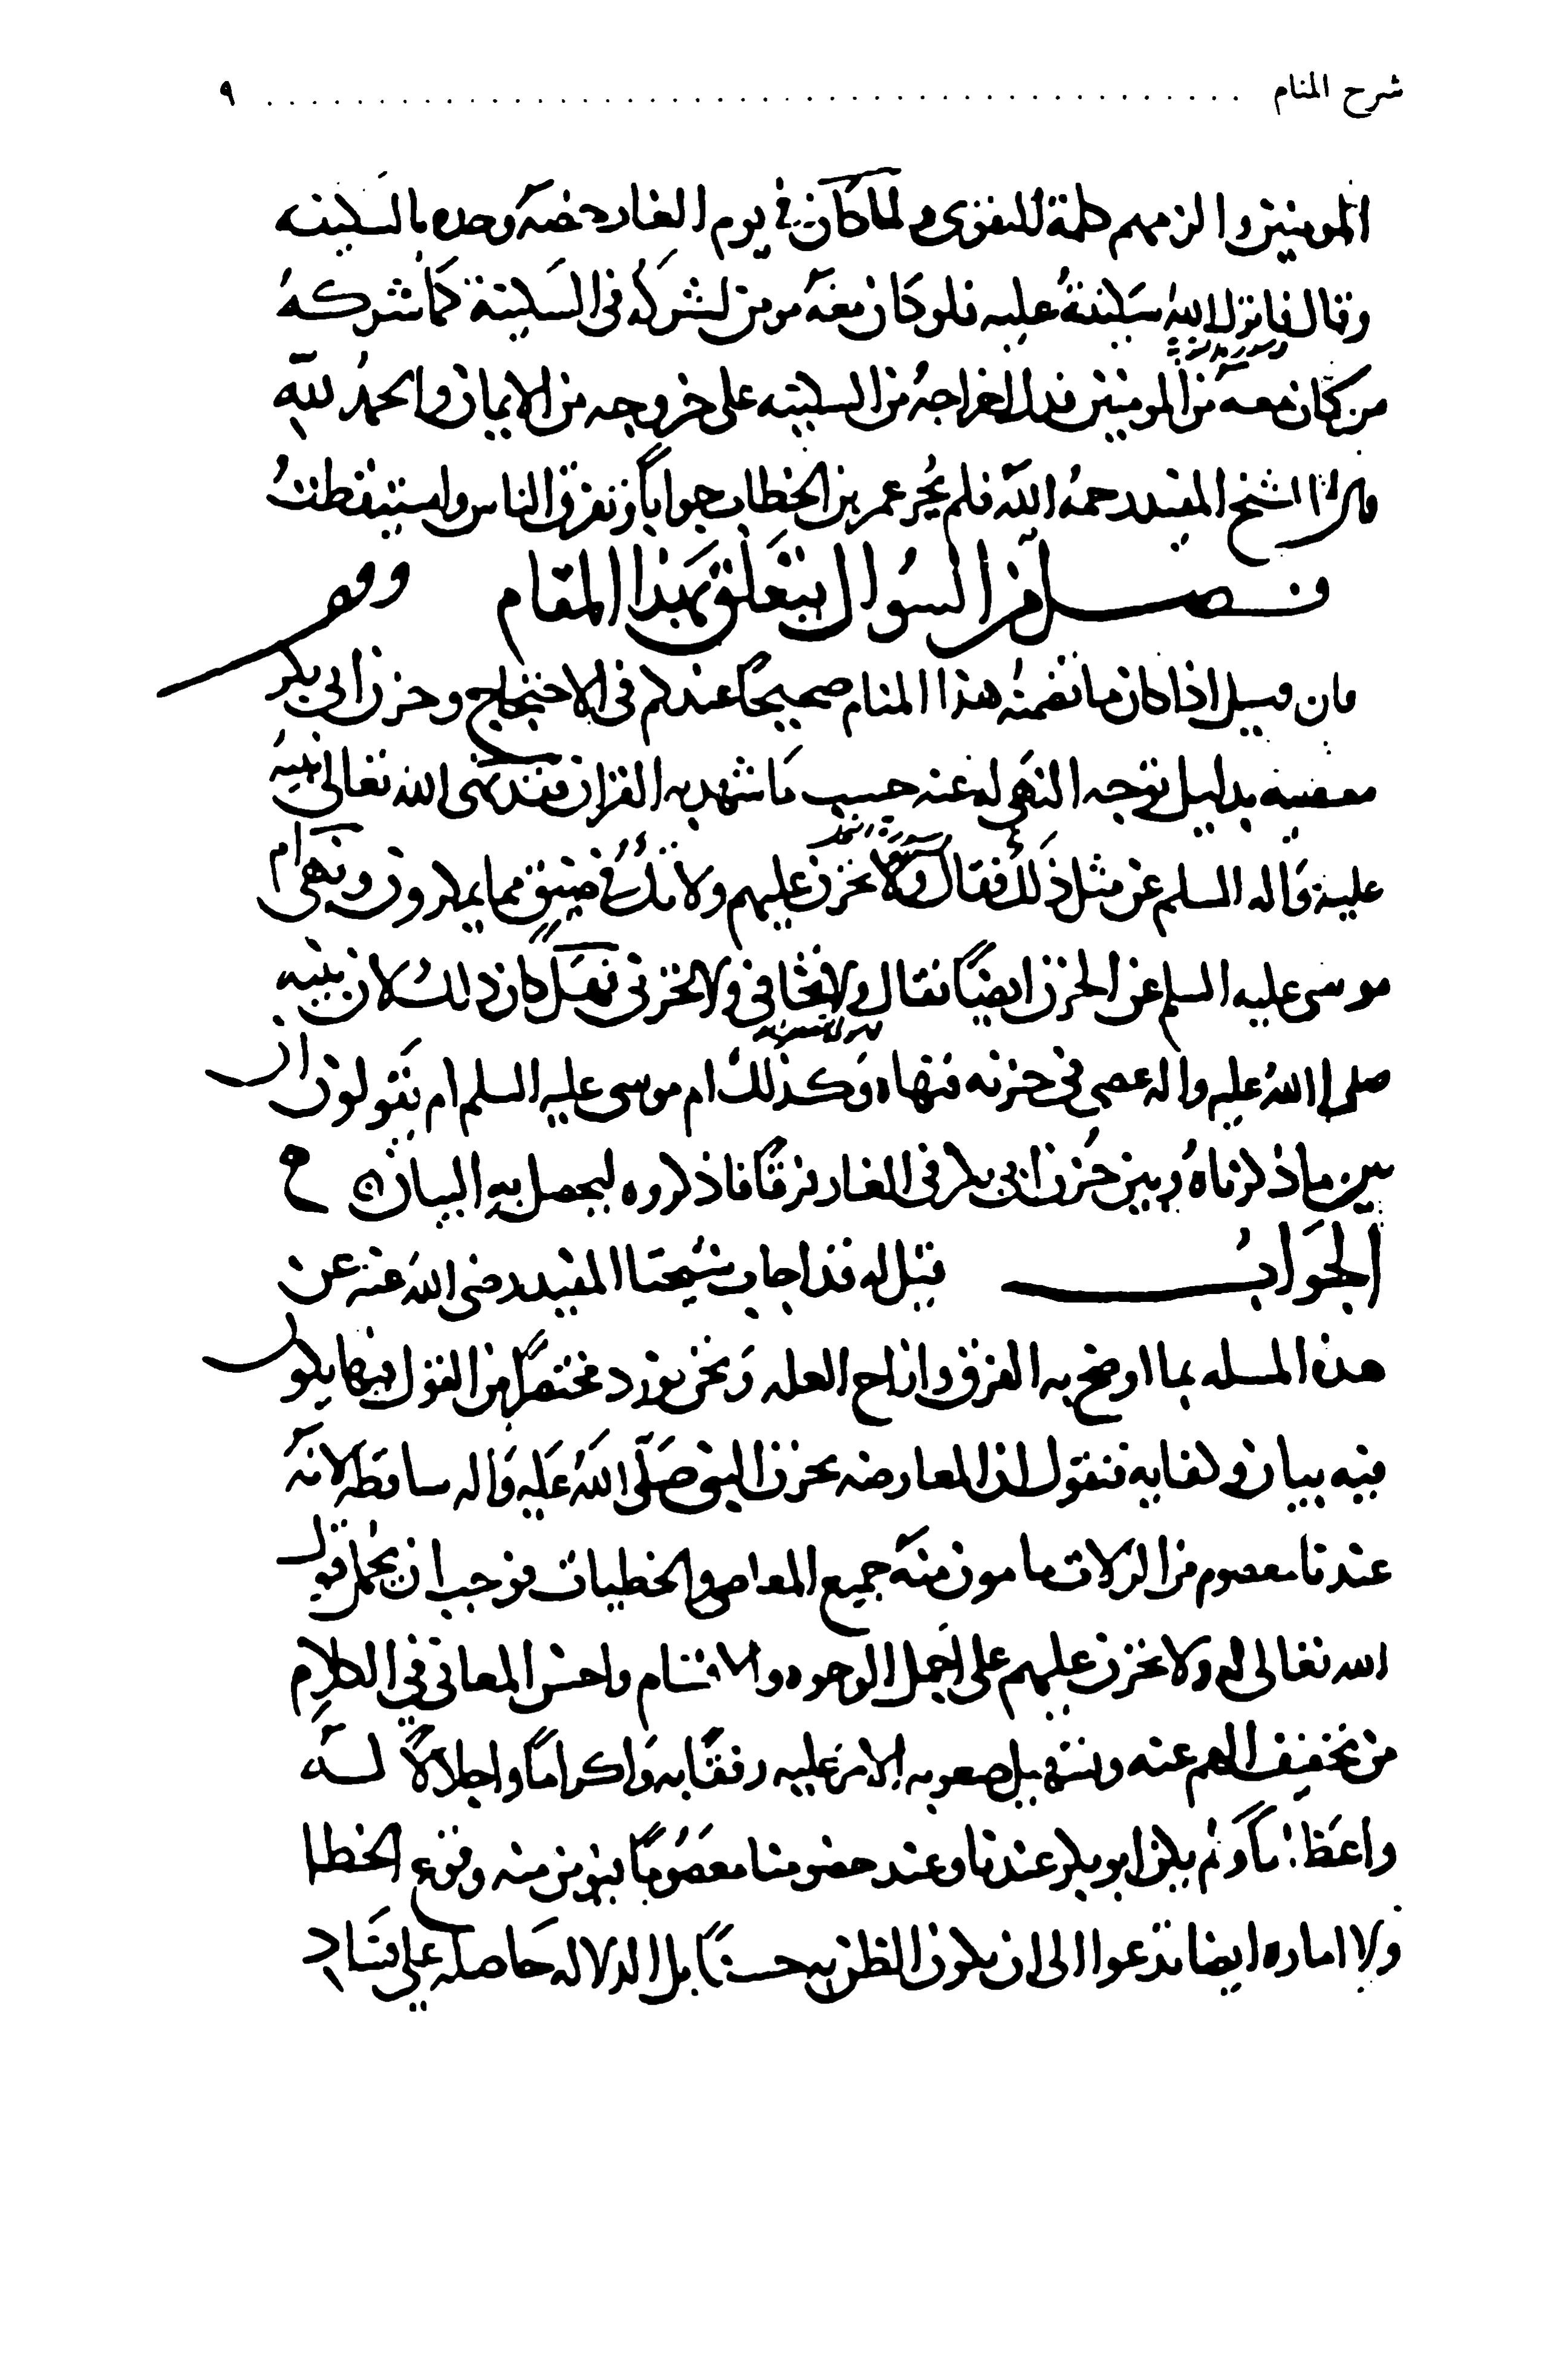 شرح المنام ........................................ ٩
المومنين والزمهم كلمة التقوى ولما كان في يوم الغار خصه وحده بالسكينه
وقال فانزل الله سكينته عليه فلو كان معه مومن لشركه في السكينة كما شركه
من كان معه من المومنين فدل اخراجه من السكينه على خروجه من الايمان والحمد لله
قال الشيخ المفيد رحمه الله فلم يحر عمر بن الخطاب جوابا وتفرق الناس واستيقظت
فصل من السوال يتعلق بهذا المقام وهو
فان قيل اذا كان ما تضمنه هذا المنام صحيحا عندكم في الاحتجاج وحزن ابي بكر
معصيه بدليل توجه النهي له عنه حسب ما شهد به القران فقد نهى الله تعالى نبيه
عليه واله السلم عن مثل ذلك فقال ولا تحزن عليهم ولا تك في ضيق مما يمكرون ونهى ام
موسى عليه السلم عن الحزن ايضا فقال ولا تخافي ولا تحزني فهل كان ذلك لان نبيه
صلى الله عليه واله عصى في حزنه فنهاه وكذلك ام موسى عليه السلم ام تقولون ان
بين ما ذكرناه وبين حزن ابي بكر في الغار فرقا فاذكروه ليحصل به البيان
الجواب قيل له قد اجاب شيخنا المفيد رضي الله عنه عن
هذه المسله بما اوضح به الفرق وازاح العله ونحن نورد مختصرا من القول فيها يكو
فيه بيان وكفايه فنقول ان المعارضه بحزن النبي صلى الله عليه واله ساقطه لانه
عندنا معصوم من الزلات مامون منه جميع المعاصي والخطيات فوجب ان يحمل قول
الله تعالى له ولا تحزن عليهم على اجمل الوجوه والاقسام واحسن المعاني في الكلام
من تخفيف الهم عنه وتسهيل صعوبه الامر عليه رفقا به واكراما واجلالا له
واعظاما ولم يكن ابو بكر عندنا وعند خصومنا معصوما فيومن منه وقوع الخطا
ولا اماره ايضا تدعوا الى ان يكون الظن به حسنا بل الدلاله حاصله على فساد